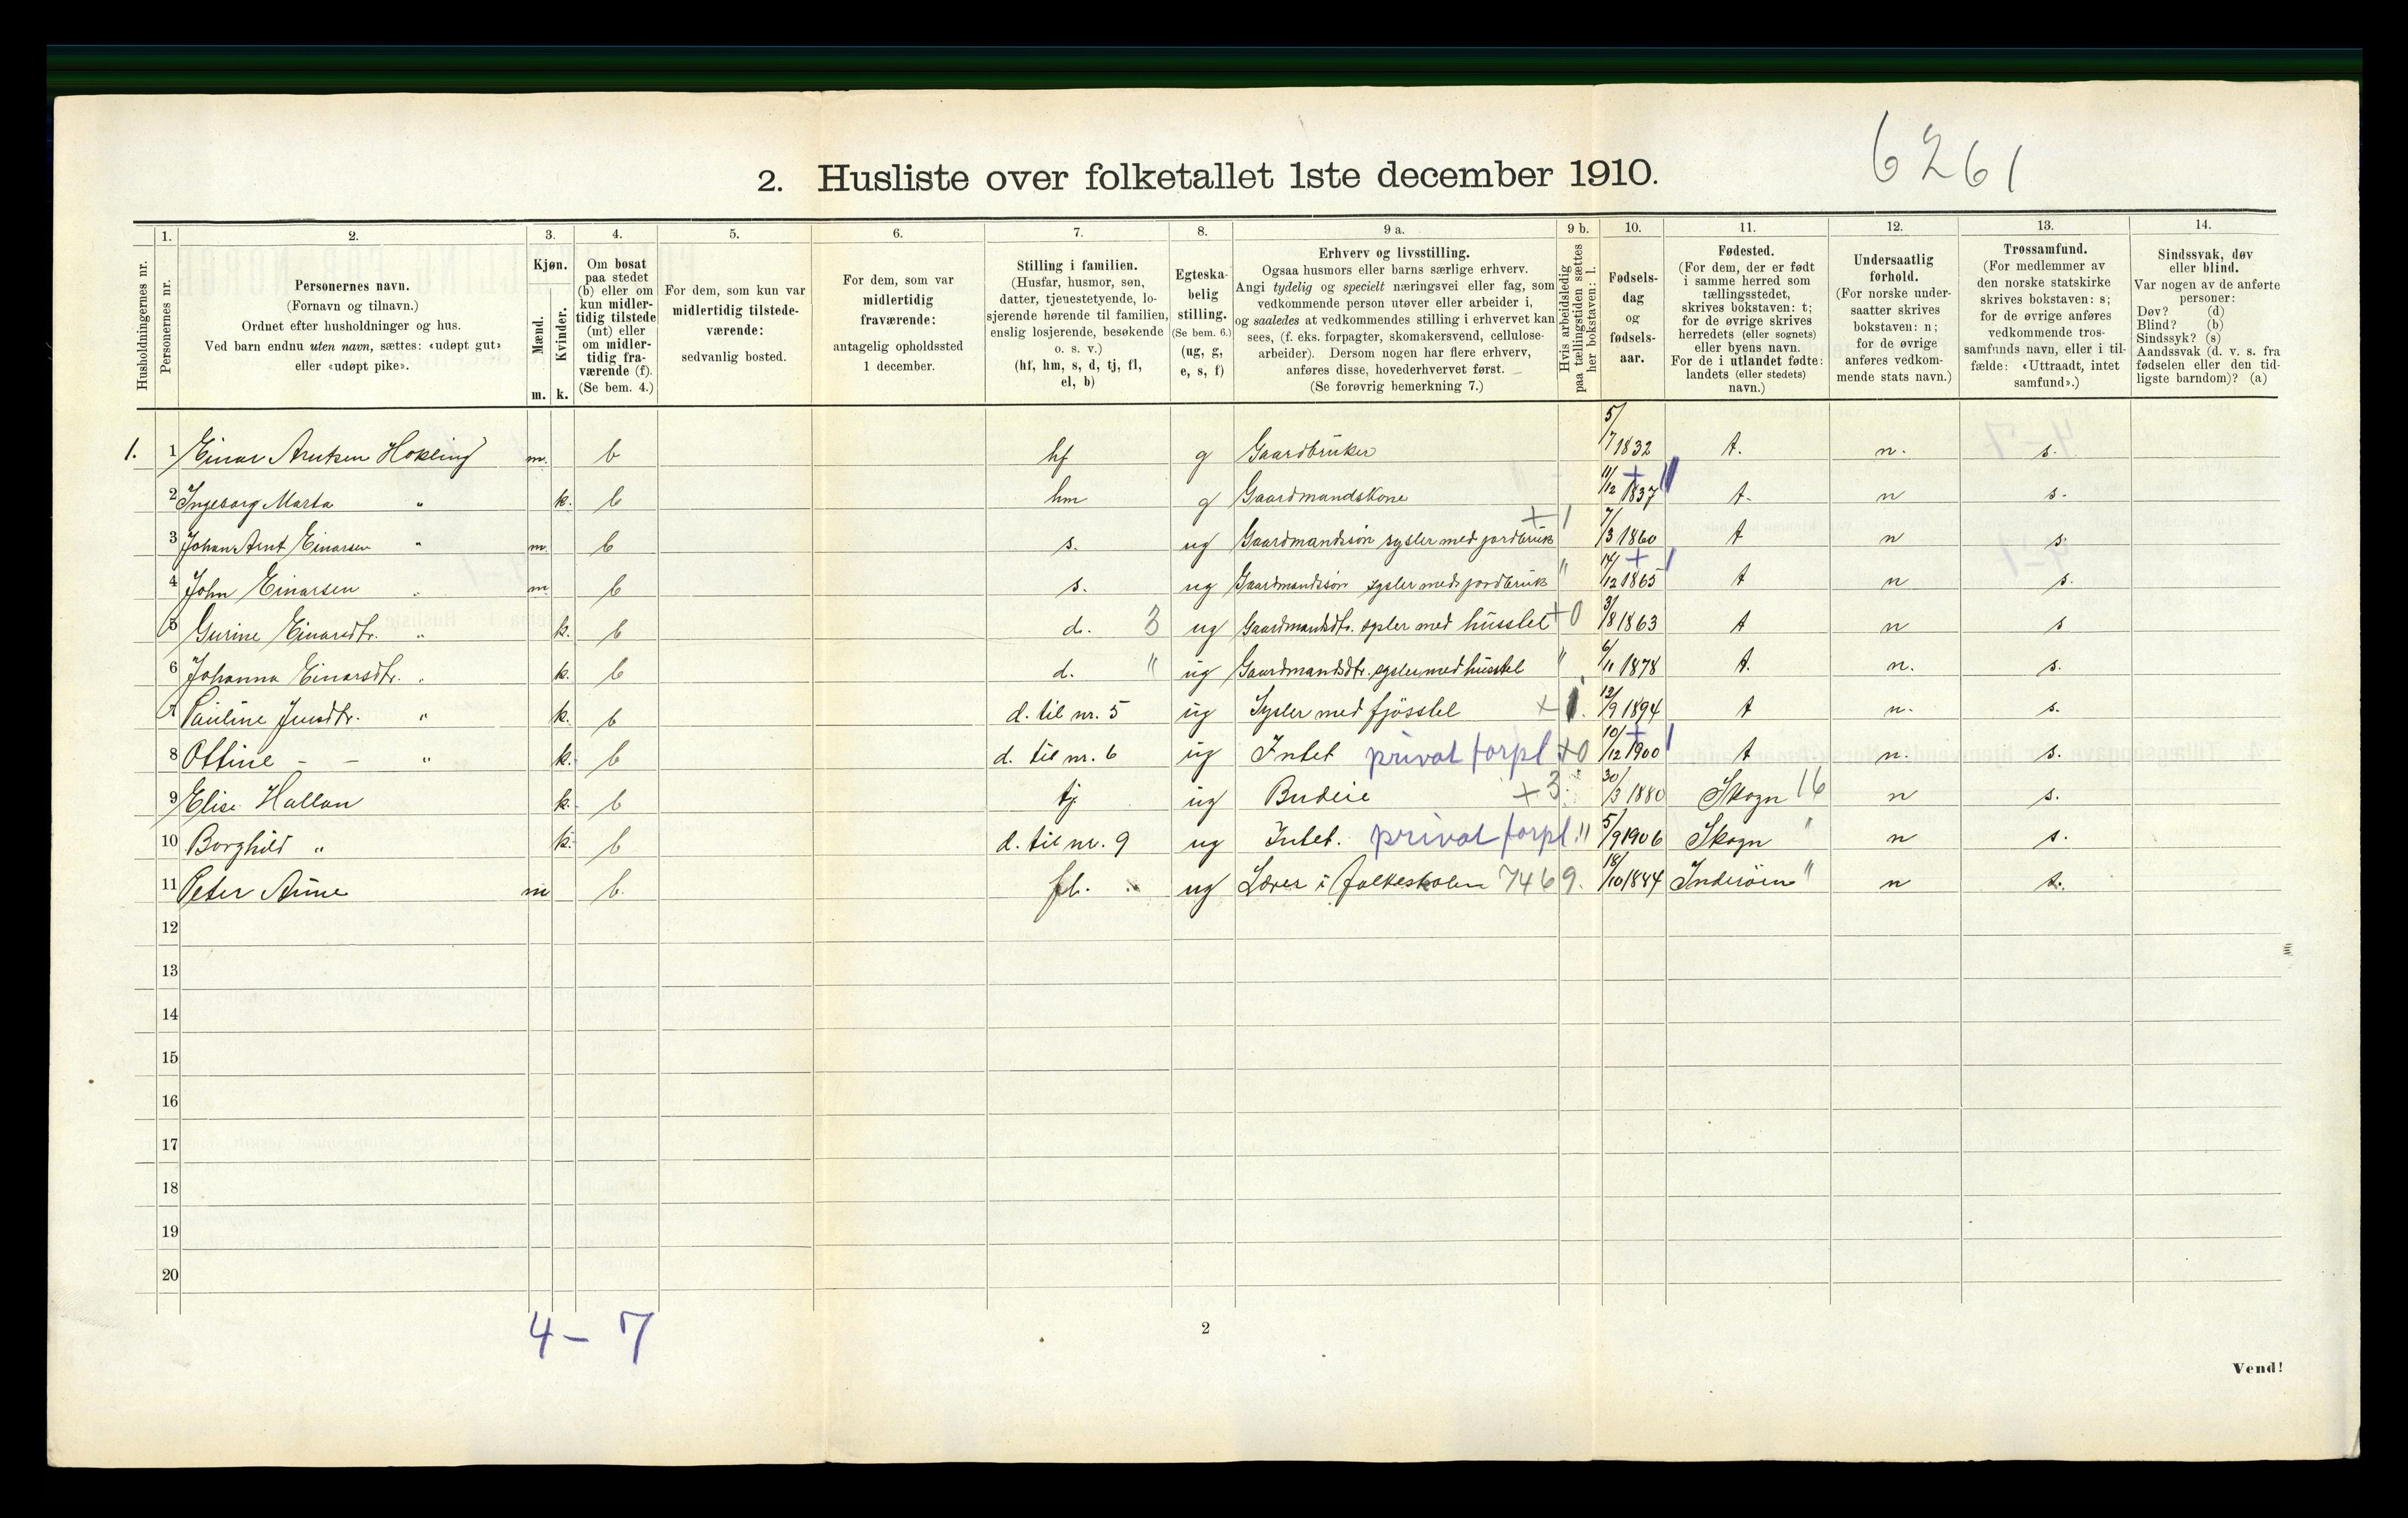 6261
2. Husliste over folketallet 1ste december 1910.
Husholdningernes nr.
1.
Personernes nr.
2.
Personernes navn.
(Fornavn og tilnavn.)
Ordnet efter husholdninger og hus.
Ved barn endnu uten navn, sættes: «udøpt gut»
eller «udøpt pike».
3.
Kjøn.
Mænd.
Kvinder.
m. k.
4.
Om bosat
paa stedet
(b) eller om
kun midler-
tidig tilstede
(mt) eller
om midler-
tidig fra-
værende (f).
(Se bem. 4.)
5.
For dem, som kun var
midlertidig tilstede-
værende:
sedvanlig bosted.
6.
For dem, som var
midlertidig
fraværende:
antagelig opholdssted
1 december.
7.
Stilling i familien.
(Husfar, husmor, søn,
datter, tjenestetyende, lo-
sjerende hørende til familien,
enslig losjerende, besøkende
o. s. v.)
(hf, hm, s, d, tj, fl,
el, b)
8.
Egteska-
belig
stilling.
(Se bem. 6.)
(ug, g,
e, s, f)
9 a.
Erhverv og livsstilling.
Ogsaa husmors eller barns særlige erhverv.
Angi tydelig og specielt næringsvei eller fag, som
vedkommende person utøver eller arbeider i,
og saaledes at vedkommendes stilling i erhvervet kan
sees, (f. eks. forpagter, skomakersvend, cellulose-
arbeider). Dersom nogen har flere erhverv,
anføres disse, hovederhvervet først.
(Se forøvrig bemerkning 7.)
9 b.
Hvis arbeidsledig
paa tællingstiden sættes
her bokstaven: l.
10.
Fødsels-
dag
og
fødsels-
aar.
11.
Fødested.
(For dem, der er født
i samme herred som
tællingsstedet,
skrives bokstaven: t;
for de øvrige skrives
herredets (eller sognets)
eller byens navn.
For de i utlandet fødte:
landets (eller stedets)
navn.)
12.
Undersaatlig
forhold.
(For norske under-
saatter skrives
bokstaven: n;
for de øvrige
anføres vedkom-
mende stats navn.)
13.
Trossamfund.
(For medlemmer av
den norske statskirke
skrives bokstaven: s;
for de øvrige anføres
vedkommende tros-
samfunds navn, eller i til-
fælde: «Uttraadt, intet
samfund».)
14.
Sindssvak, døv
eller blind.
Var nogen av de anførte
personer:
Døv? (d)
Blind? (b)
Sindssyk? (s)
Aandssvak (d. v. s. fra
fødselen eller den tid-
ligste barndom)? (a)
1. 1 Einar Arntsen Hokling m. b hf g Gaardbruker 5/7 1832 t. n. s.
2 Ingeborg Marta " k. b hm g Gaardmandskone 11/12 1837 t. n s.
3 Johan Arnt Einarsen " m. b s. ug Gaardmandssøn sysler med jordbruk + 1 7/3 1860 t n s.
4 John Einarsen " m b s. ug Gaardmandssøn sysler med jordbruk " 14/12 1865 t n s.
5 Gurine Einarsdtr. " k. b d. 3 ug Gaardmandsdtr. sysler med husstel +0 3/8 1863 t n s
6 Johanna Einarsdtr. " k. b d. " ug Gaardmandsdtr. sysler med husstel " 6/11 1878 t. n. s.
7 Pauline Jensdtr. " k. b d. til nr. 5 ug Sysler med fjøsstel + 1. 12/9 1894 t n. s.
8 Ottine - - " k. b d. til nr. 6 ug Intet privat forpl +0 10/12 1900 t n. s.
9 Elise Hallan k. b tj ug Budeie +3. 30/3 1880 Skogn 16 n s.
10 Borghild " k. b d. til nr. 9 ug Intet. privat forpl. " 5/9 1906 Skogn " n s.
11 Peter Aune m b. fl. ug Lærer i folkeskolen 7469. 18/10 1884 Inderøen " n s.
12
13
14
15
16
17
18
19
20
4 - 7
2
Vend!